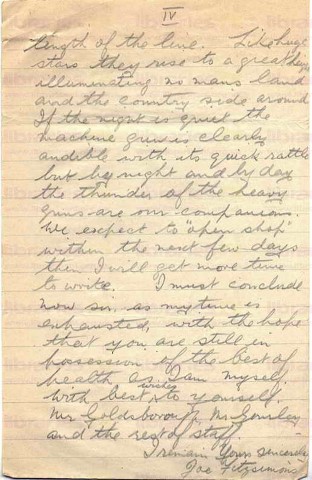 IV
length of the line. Like huge
stars they rise to a great height
illuminating no mans land
and the country side around
If the night is quiet the
machine gun is clearly
audible with its quick rattle
but by night and by day
the thunder of the heavy
guns are our companions.
We expect to "open shop
within the next few days
then I will get more time
to write. I must conclude
now sir, as my time is
exhausted, with the hope
that you are still in
possession of the best of
health as I am myself.
with best wishes to yourself.
Mr Goldsborough Mr Gourley
and the rest of staff.
I remain Yours Sincerely
Joe Fitzsimons